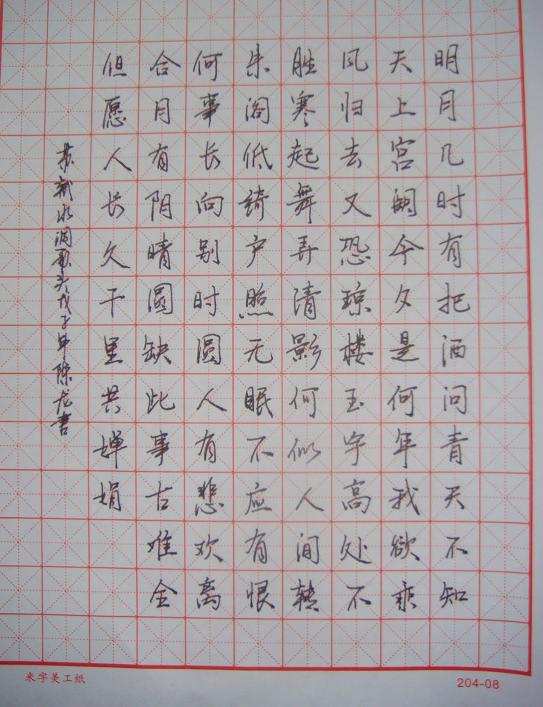 明月几时有把酒问青天不知
天上宫阙今夕是何年我欲乘
风归去又恐琼楼玉宇高处不
胜寒起舞弄清影何似人间转
朱阁低绮户照无眠不应有恨
何事长向别时圆人有悲欢离
合月有阴晴圆缺此事古难全
但愿人长久千里共婵娟
苏轼水调歌头戊子年陈龙书
米字美工纸
204-08